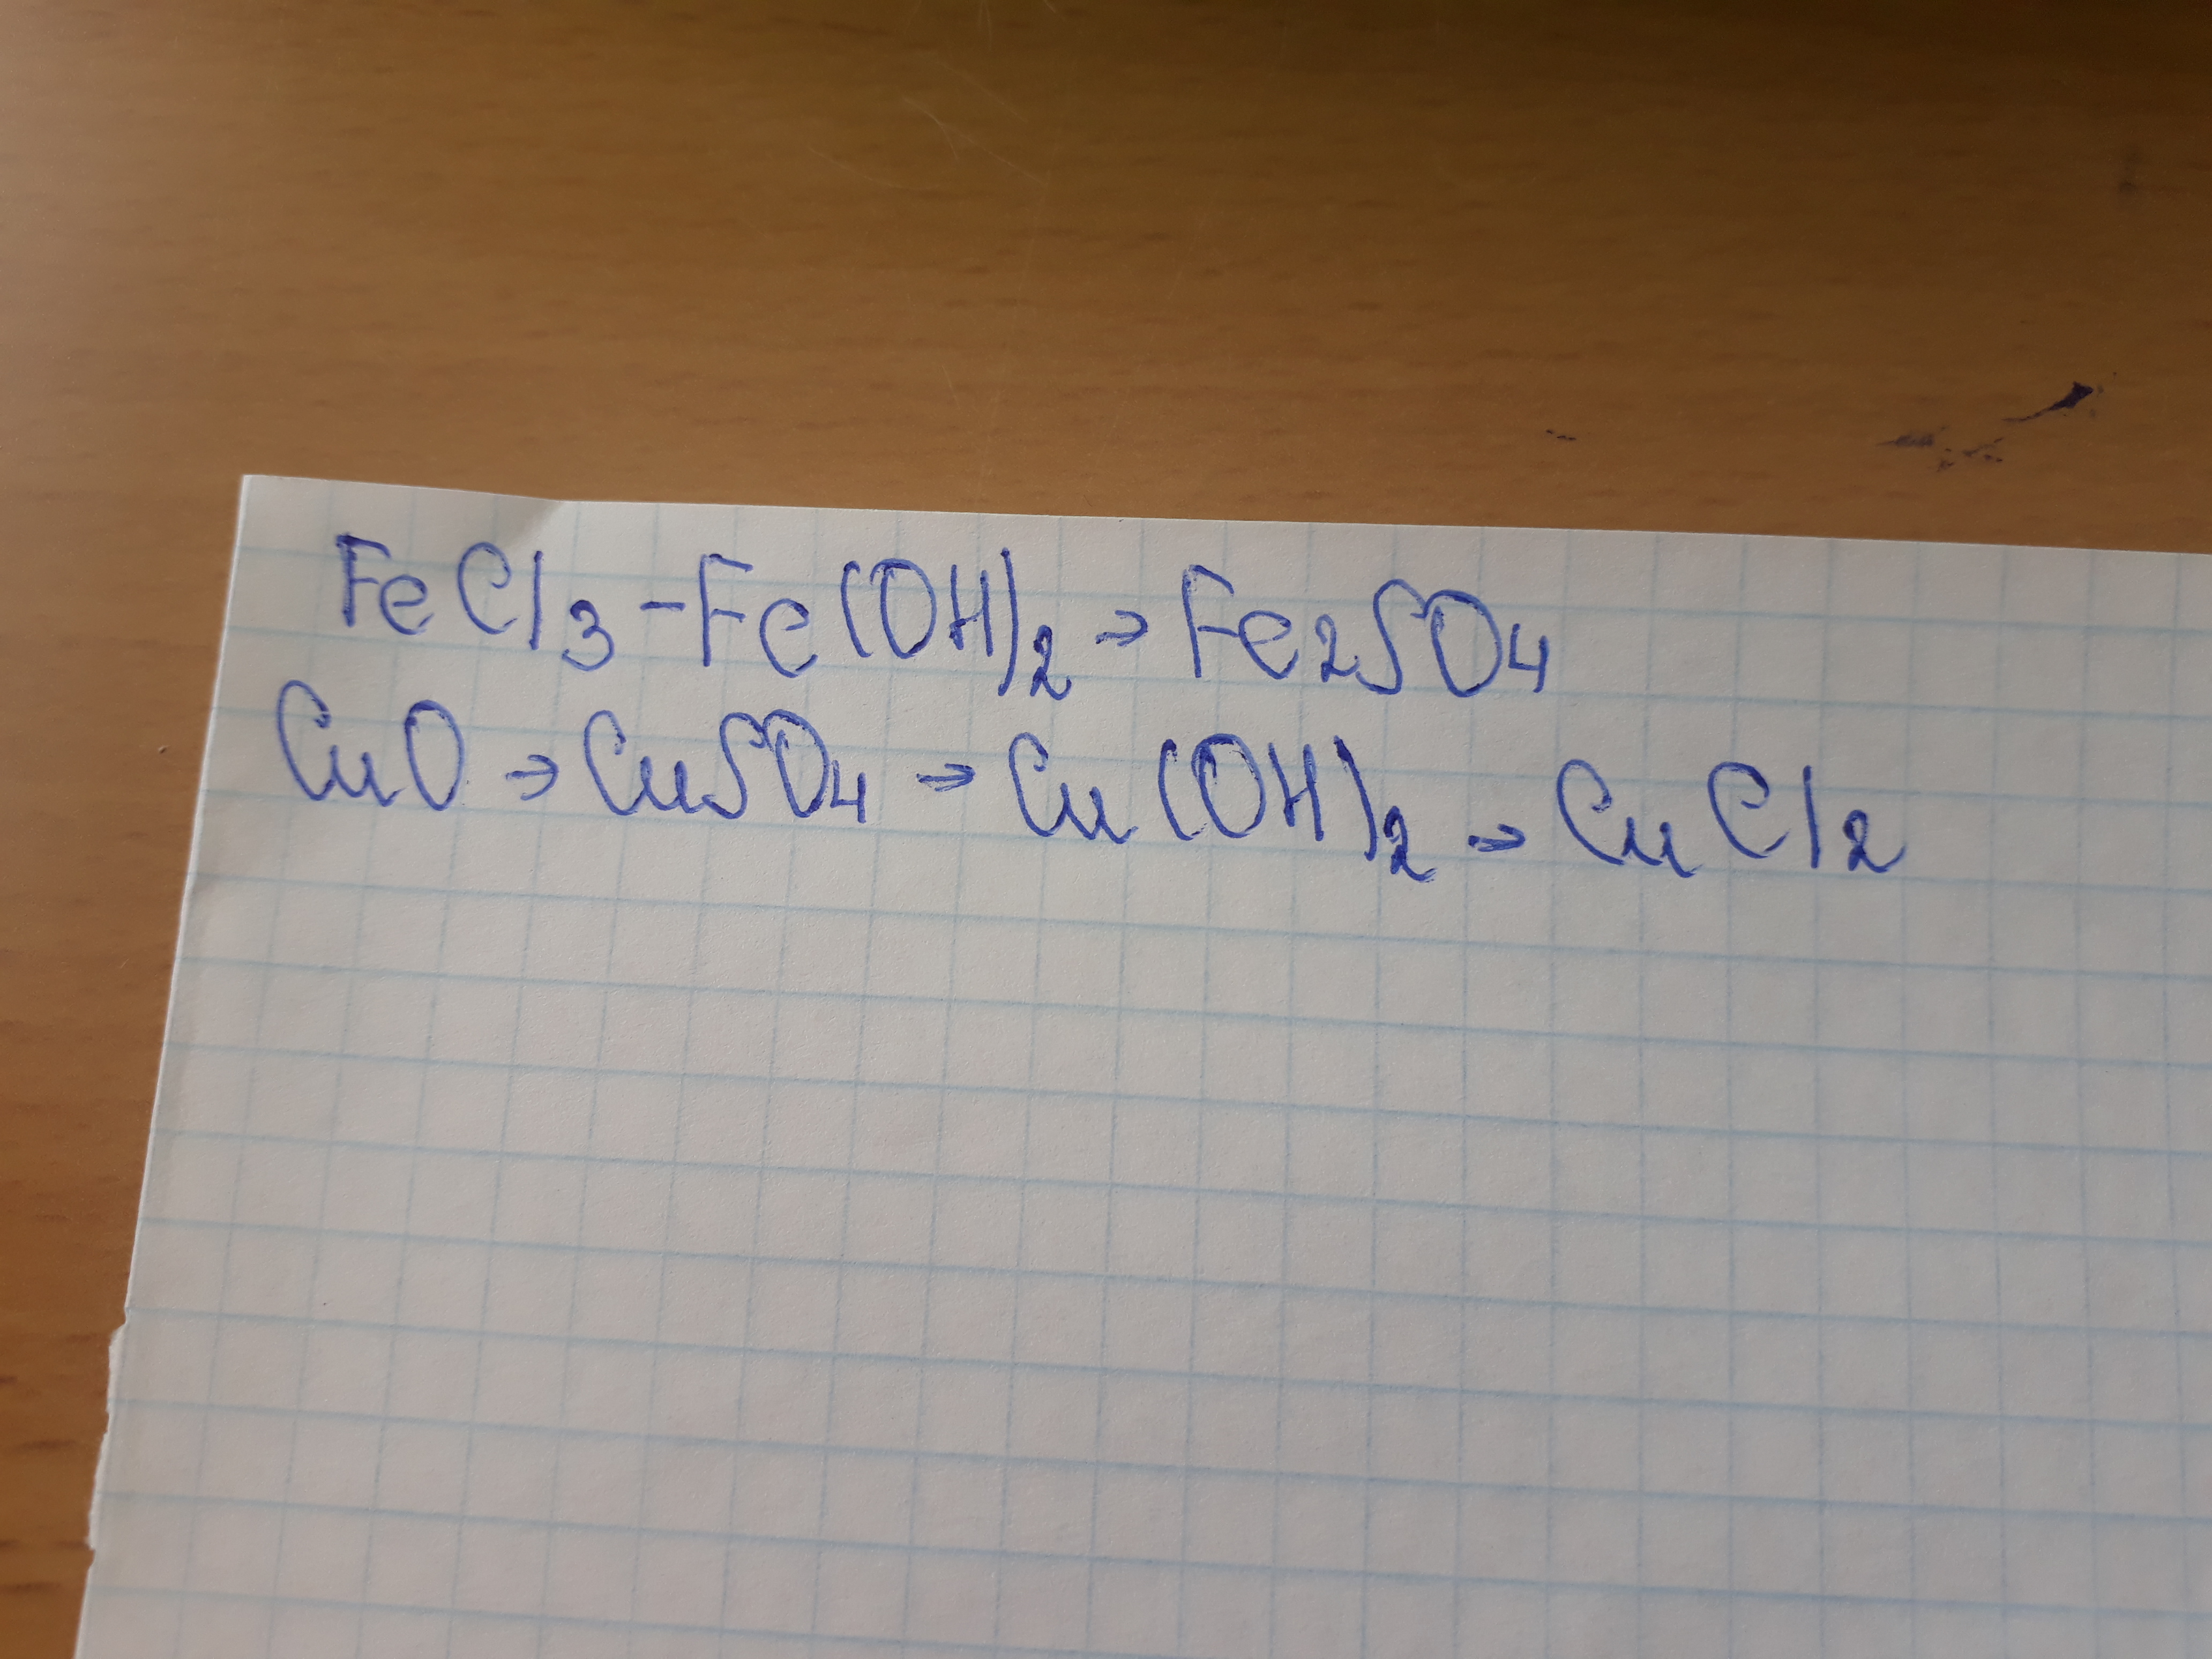 FeCl3-Fe(OH)2→Fe2SO4
CuO→CuSO4→Cu(OH)2→CuCl2